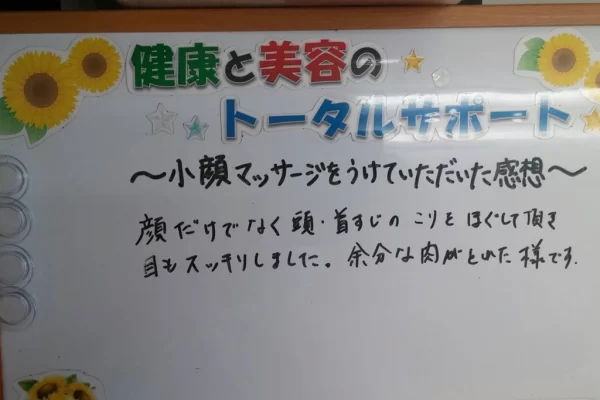 健康と美容の
トータルサポート
～小顔マッサージをうけていただいた感想～
顔だけでなく頭・首すじのこりをほぐして頂き
目もスッキリしました。余分な肉がとれた様です.